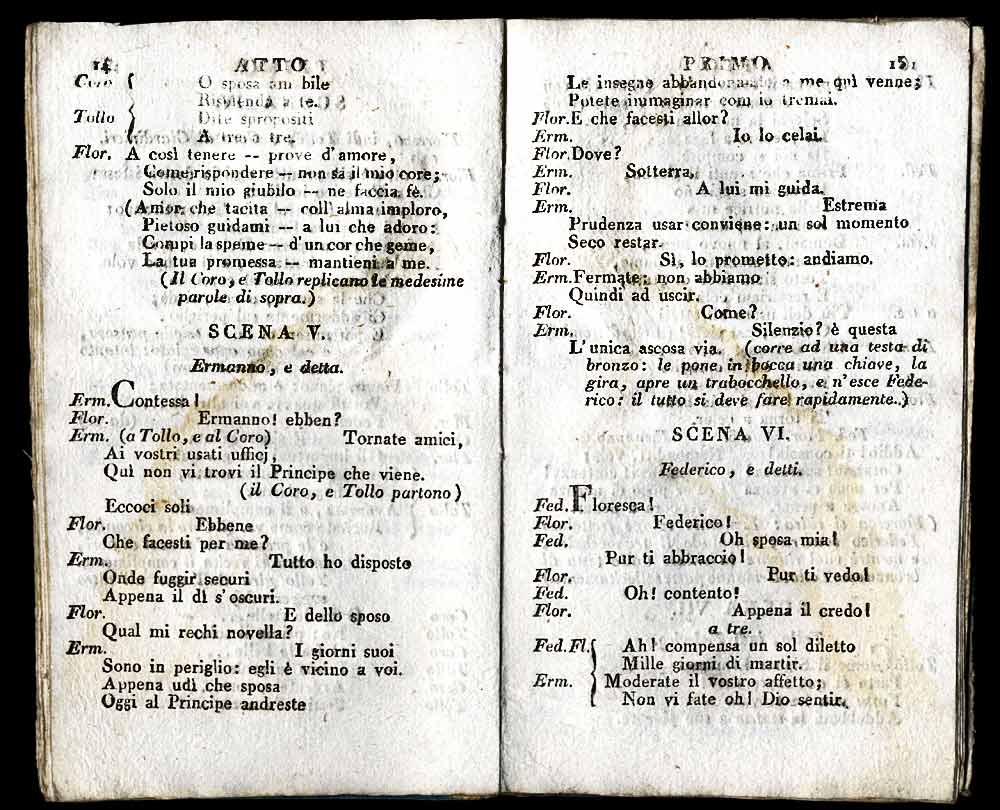 14 ATTO
Coro O sposa am bile
Risplenda a te.
Tollo Dite spropositi
A tre, a tre.
Flor. A così tenere -- prove d'amore,
Come rispondere -- non sa il mio core;
Solo il mio giubilo -- ne faccia fè.
(Amor che tacita -- coll'alma imploro,
Pietoso guidami -- a lui che adoro:
Compi la speme -- d'un cor che geme,
La tua promessa -- mantieni a me.
(Il Coro, e Tollo replicano le medesime
parole di sopra.)
SCENA V.
Ermanno, e detta.
Erm. Contessa!
Flor. Ermanno! ebben?
Erm. (a Tollo, e al Coro) Tornate amici,
Ai vostri usati ufficj,
Quì non vi trovi il Principe che viene.
(il Coro, e Tollo partono)
Eccoci soli
Flor. Ebbene
Che facesti per me?
Erm. Tutto ho disposto
Onde fuggir securi
Appena il dì s'oscuri.
Flor. E dello sposo
Qual mi rechi novella?
Erm. I giorni suoi
Sono in periglio: egli è vicino a voi.
Appena udì che sposa
Oggi al Principe andreste
PRIMO. 15
Le insegne abbandonando a me quì venne;
Potete immaginar com'io tremai.
Flor. E che facesti allor?
Erm. Io lo celai.
Flor. Dove?
Erm. Sotterra,
Flor. A lui mi guida.
Erm. Estrema
Prudenza usar conviene: un sol momento
Seco restar.
Flor. Sì, lo prometto: andiamo.
Erm. Fermate: non abbiamo
Quindi ad uscir.
Flor. Come?
Erm. Silenzio? è questa
L'unica ascosa via. (corre ad una testa di
bronzo: le pone in bocca una chiave, la
gira, apre un trabocchello, e n'esce Fede-
rico: il tutto si deve fare rapidamente.)
SCENA VI.
Federico, e detti.
Fed. Floresca!
Flor. Federico!
Fed. Oh sposa mia!
Pur ti abbraccio!
Flor. Pur ti vedo!
Fed. Oh! contento!
Flor. Appena il credo!
a tre.
Fed. Fl. Ah! compensa un sol diletto
Mille giorni di martir.
Erm. Moderate il vostro affetto;
Non vi fate oh! Dio sentir.